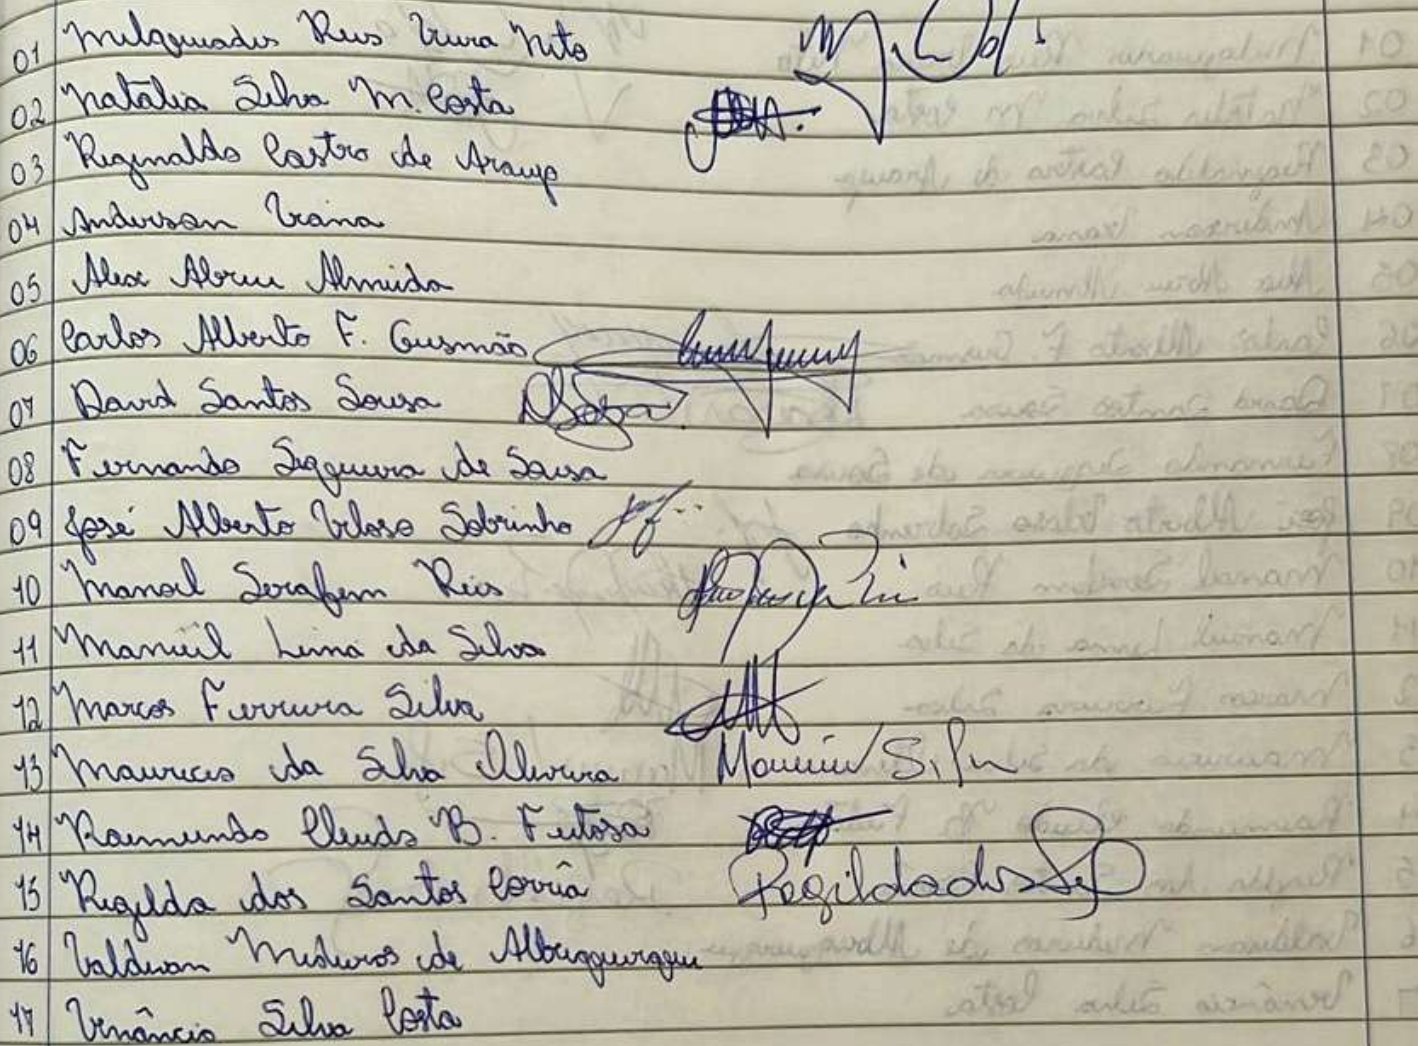 01 Milqquiades Reis Vieira Neto
02 Natália Silva M. Costa
03 Reginaldo Castro de Araujo
04 Anderson Viana
05 Alex Abreu Almeida
06 Carlos Alberto F. Gusmão
07 David Santos Sousa
08 Fernando Siqqueira de Sousa
09 José Alberto Veloso Sobrinho
10 Manoel Serafim Reis
11 Manuel Lima da Silva
12 Marcos Ferreira Silva
13 Mauricio da Silva Oliveira Mauricio Silva
14 Raimundo Cleudo B. Feitosa
15 Regilda dos Santos Corrêa Regilda dos
16 Valdivan Medeiros de Albuqquerqque
17 Venâncio Silva Costa